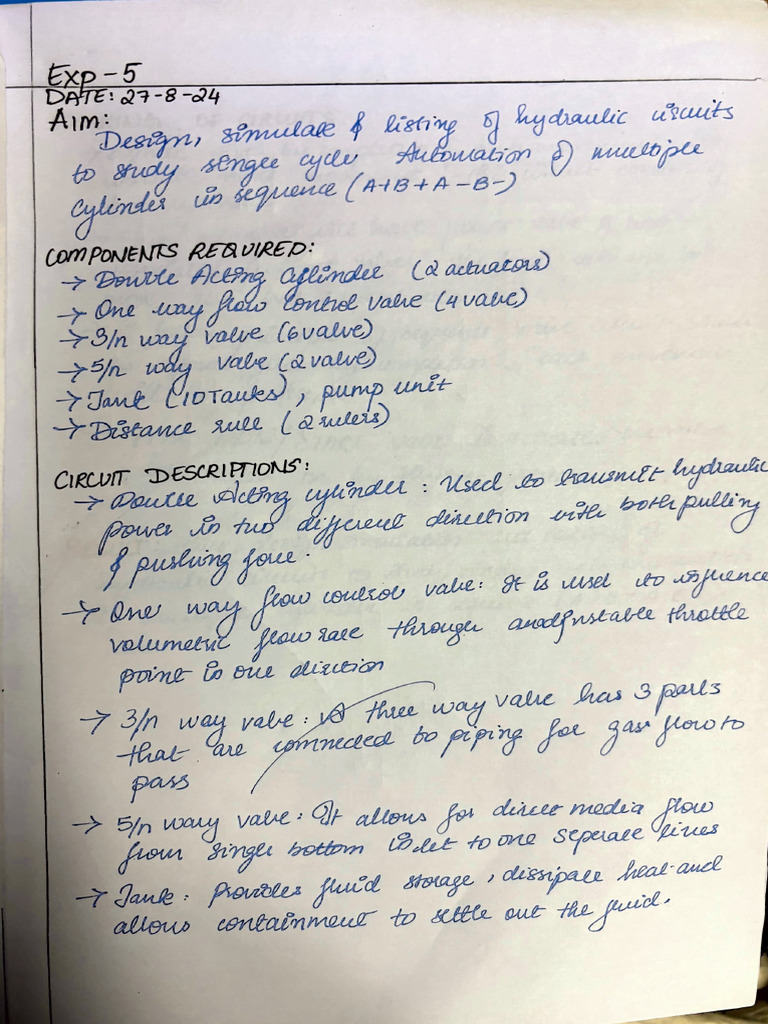 Exp - 5
DATE: 27-8-24
AIM:
Design, simulate & listing of hydraulic circuits
to study single cycle Automation of multiple
cylinder in sequence (A+B+A-B-)
COMPONENTS REQUIRED:
→ Double Acting Cylinder (2 actuators)
→ One way flow control valve (4 valve)
→ 3/n way valve (6 valve)
→ 5/n way valve (2 valve)
→ Tank (10 Tanks), pump unit
→ Distance rule (2 rulers)
CIRCUIT DESCRIPTIONS:
→ Double Acting cylinder : Used to transmit hydraulic
power in two different direction with both pulling
& pushing force.
→ One way flow control valve: It is used to influence
volumetric flow rate through an adjustable throttle
point in one direction
→ 3/n way valve: A three way valve has 3 parts
that are connected to piping for gas flow to
pass
→ 5/n way valve: It allows for direct media flow
from single bottom inlet to one seperate lines
→ Tank: Provides fluid storage, dissipate heat and
allows containment to settle out the fluid.